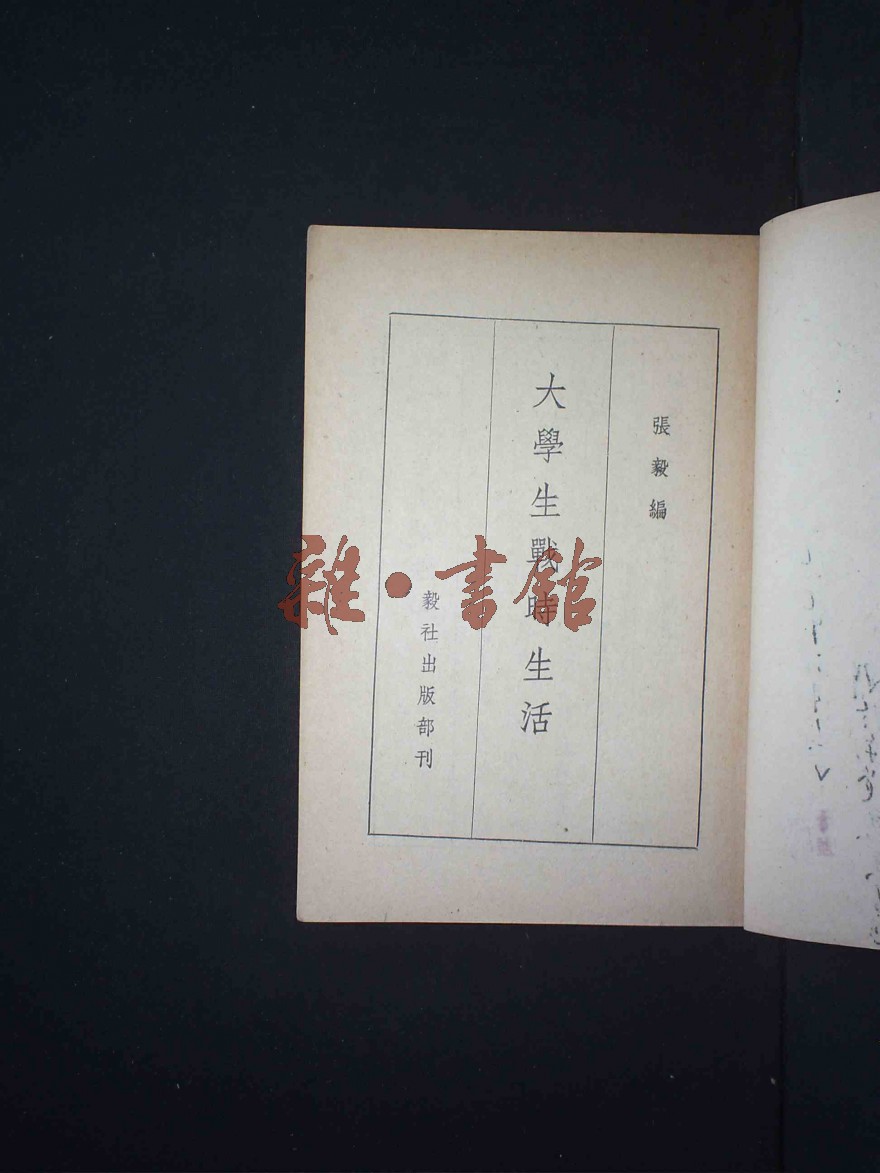 張毅編
大學生戰時生活
毅社出版部刊
雜·書館